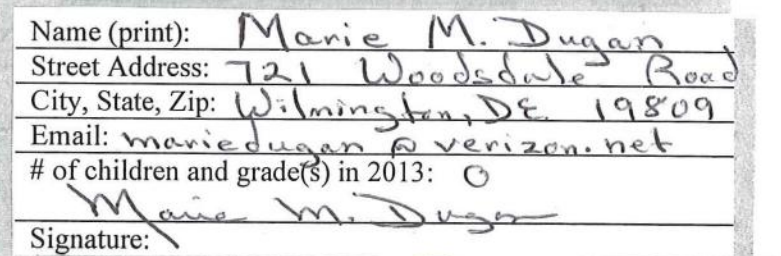 Name (print): Marie M. Dugan
Street Address: 721 Woodsdale Road
City, State, Zip: Wilmington, DE 19809
Email: mariedugan@verizon.net
# of children and grade(s) in 2013: 0
Marie M. Dugan
Signature: